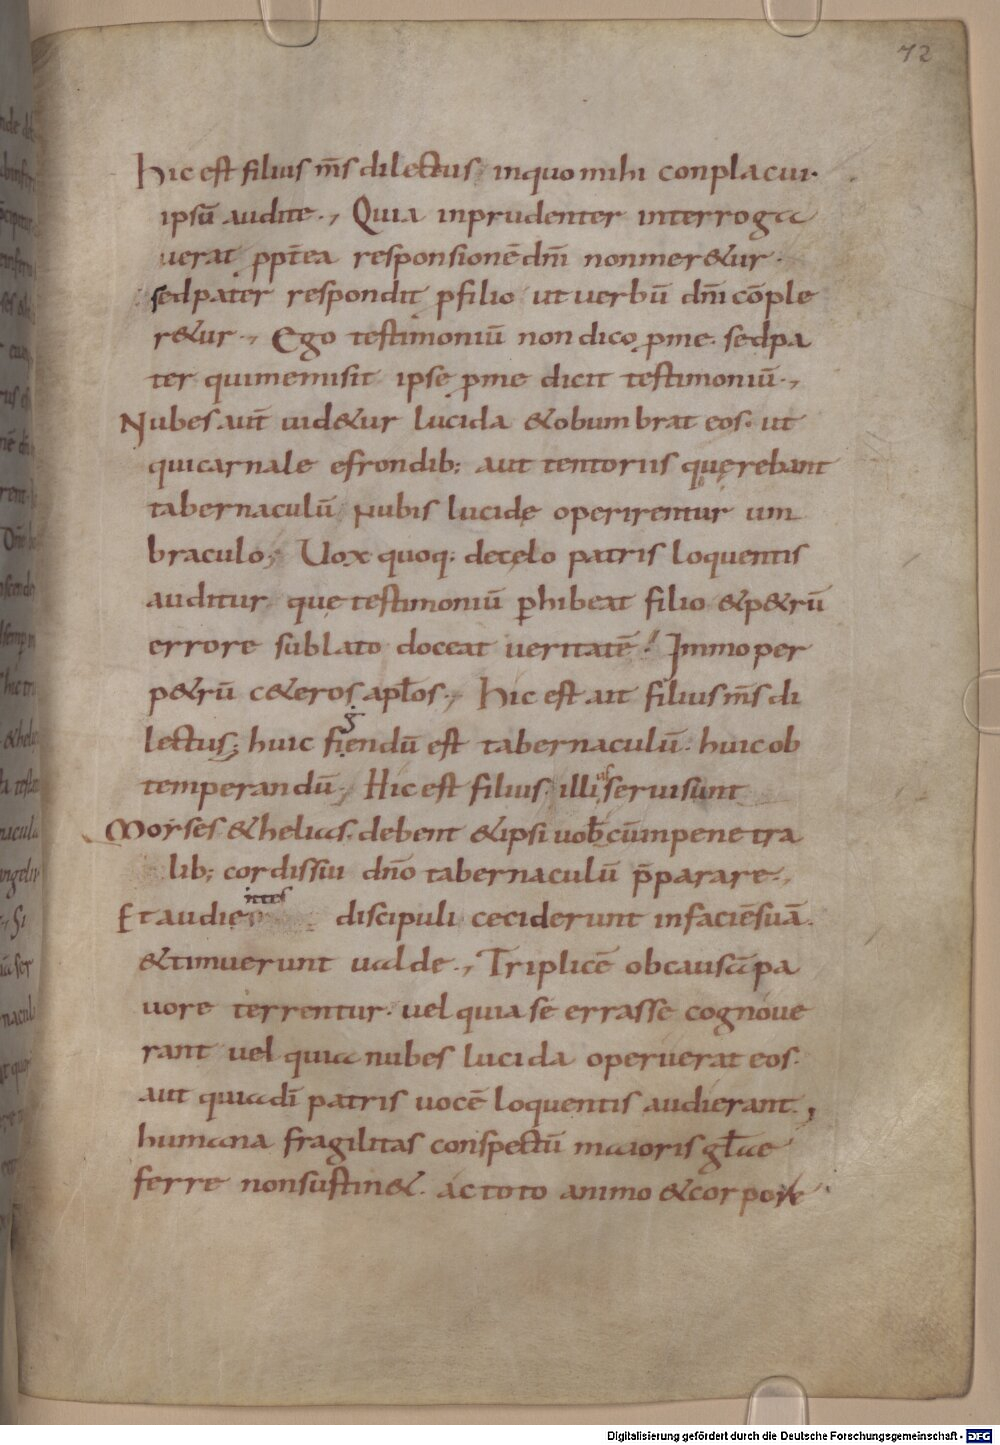 72
Hic est filius m̄s dilectus inquo mihi conplacui·
ipsū audite·, Quia inprudenter interroga
uerat ꝓpt̄ea responsionē dn̄i nonmer&ur·
sedpater respondit ꝓfilio ut uerbū dn̄i cōple
r&ur·, Ego testimoniū non dico ꝓme· sedpa
ter quimemisit ipse ꝓme dicit testimoniū·,
Nubes aut̄ uid&ur lucida &obumbrat eos· ut
quicarnale efrondib; aut tentoriis quęrebant
tabernaculū nubis lucidę operirentur um
braculo; Uox quoq; decęlo patris loquentis
auditur quę testimoniū ꝑhibeat filio &p&rū
errore sublato doceat ueritatē! Immo per
p&rū c&eros apl̄os·, Hic est ait filius m̄s di
lectus; huic fiendū est tabernaculū· huic ob
g
temperandū; Hic est filius· illi serui sunt
Moyses &helias· debent &ipsi uob̄cūm penetra
lib; cordis sui dn̄o tabernaculū p̄parare·,
Et audientes discipuli ceciderunt infaciē suā·
&timuerunt ualde·, Triplicē ob causā pa
uore terrentur· uel quia se errasse cognoue
rant uel quia nubes lucida operuerat eos·
aut quia dī patris uocē loquentis audierant·,
humana fragilitas conspectū maioris gl̄ae
ferre non sustin&· ac toto animo &corpore
Digitalisierung gefördert durch die Deutsche Forschungsgemeinschaft - DFG